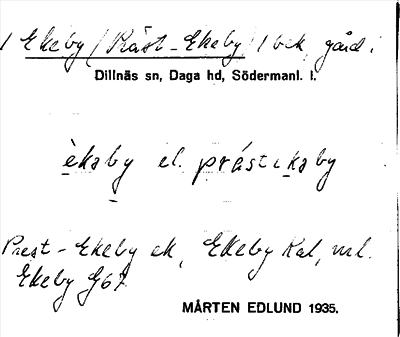 1 Ekeby (Präst-Ekeby) 1 bek, gård i
Dillnäs sn, Daga hd, Södermanl. l.
èkaby el. prástikaby
Prest-Ekeby ek, Ekeby Kat, nrl.
Ekeby G67
MÅRTEN EDLUND 1935.